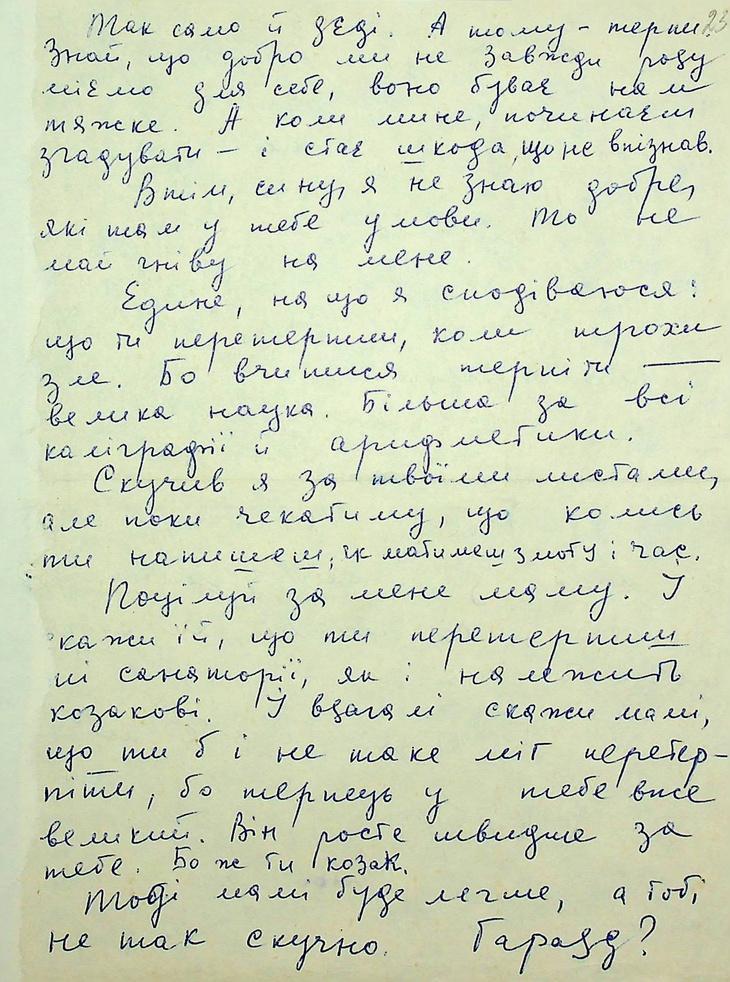 Так само й зеді. А тому - терпи 23
Знай, що добро ми не завжди розу
міємо для себе, воно буває нам
тяжке. А коли мине, починаєм
згадувати — і стає шкода, що не впізнав.
Втім, сину, я не знаю добре,
які там у тебе умови. То не
май гніву на мене.
Єдине, на що я сподіваюся:
що ти перетерпиш, коли трохи
зле. Бо вчитися терпіти —
велика наука. Більша за всі
каліграфії й арифметики.
Скучив я за твоїми листами,
але поки чекатиму, що колись
ти напишеш, як матимеш змогу і час.
Поцілуй за мене маму. І
кажи їй, що ти перетерпиш
ці санаторії, як і належить
козакові. І взагалі скажи мамі,
що ти б і не таке міг перетер-
піти, бо терпець у тебе вже
великий. Він росте швидше за
тебе. Бо ж ти козак.
Тоді мамі буде легше, а тобі
не так скучно. Гаразд?